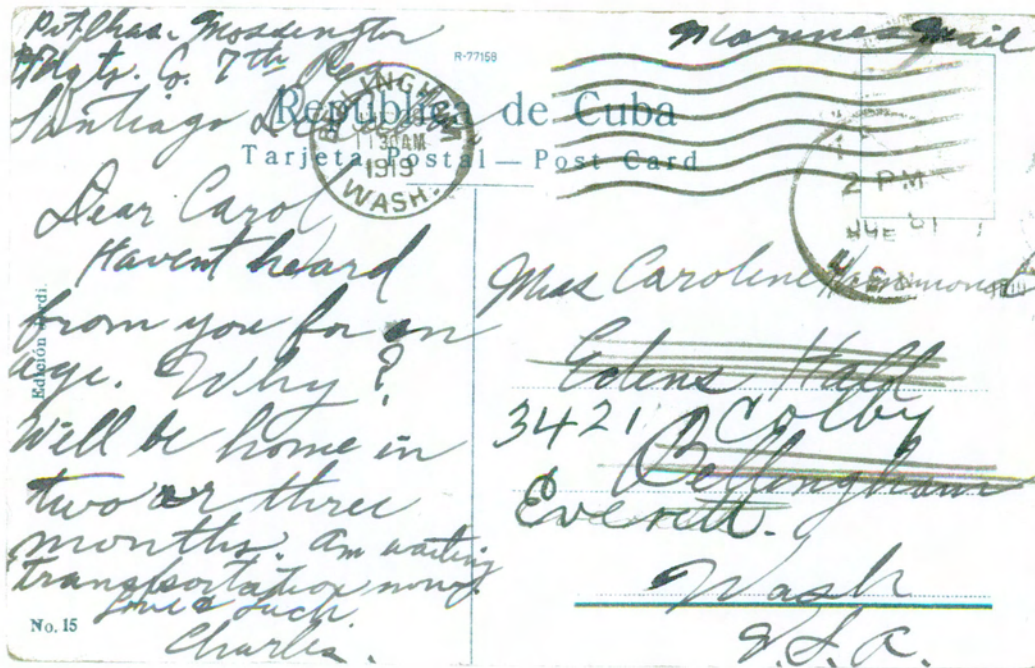 Pvt Chas. Mossington
Hdqts. Co. 7th Reg
Santiago De Cuba
Marines Mail
R-77158
República de Cuba
Tarjeta Postal — Post Card
BELLINGHAM
11 30 AM
1919
WASH.
2 PM
Dear Carol
Havent heard
from you for an
age. Why?
Will be home in
two or three
months. Am waiting
transportation now.
Love & Such
Charlie.
Edición Jordi.
No. 15
Miss Caroline Hammond
Edens Hall
3421 Colby
Bellingham
Everett.
Wash
U.S.A.